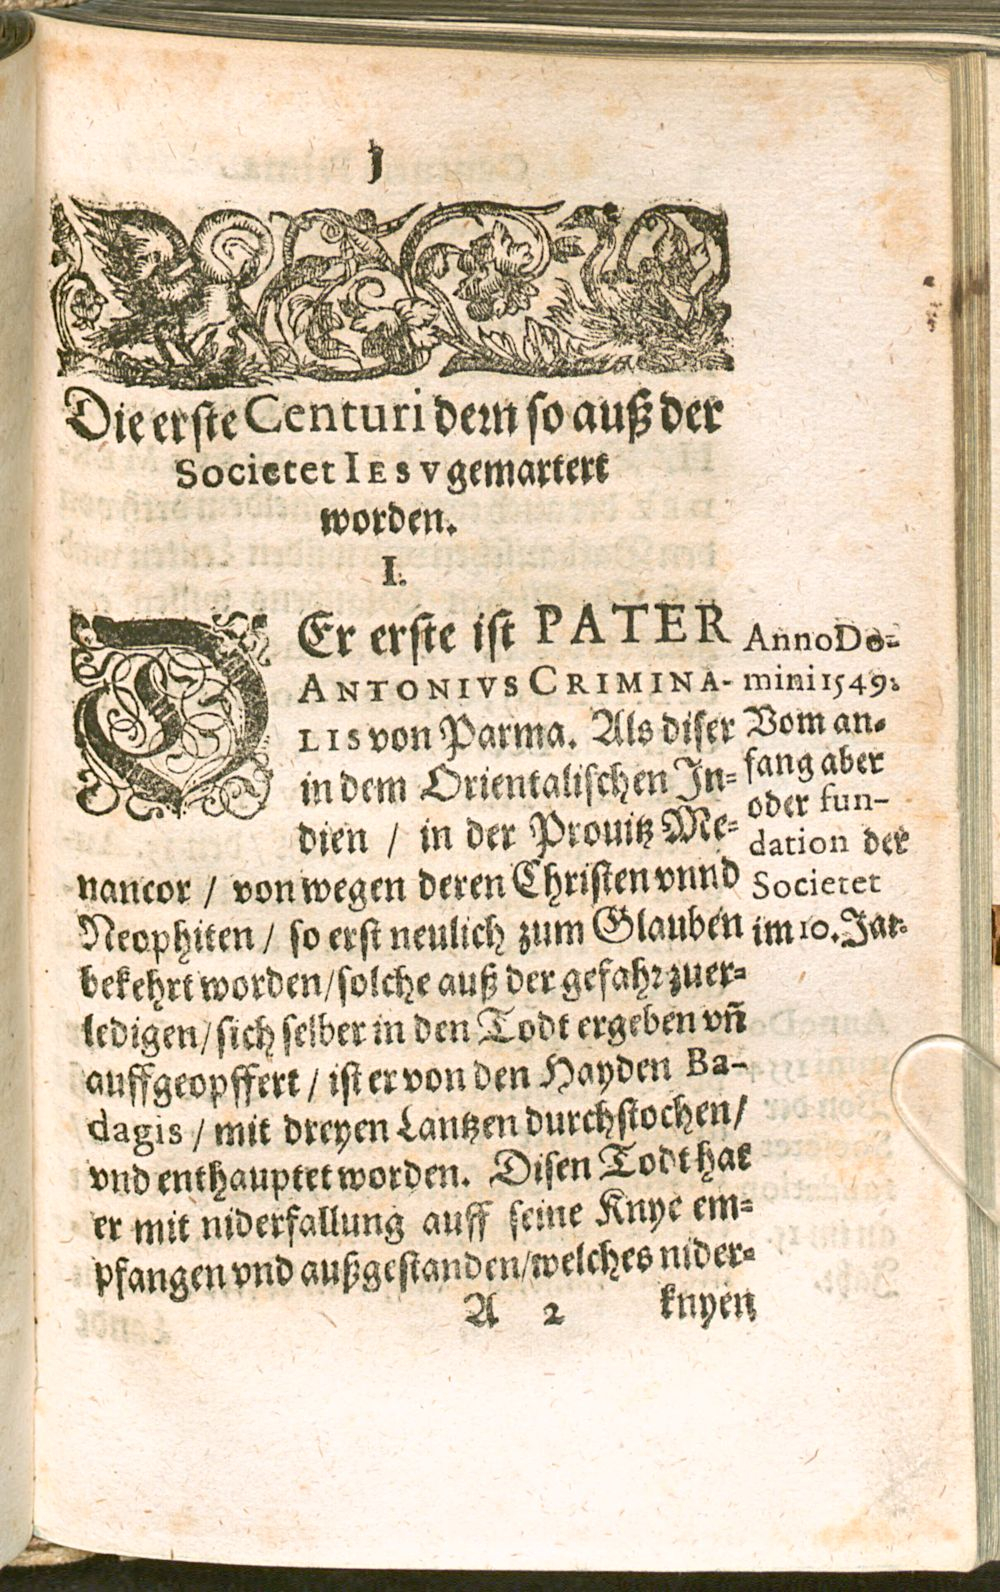 1
Die erste Centuri dern so auß der
Societet IESV gemartert
worden.
I.
DEr erste ist PATER
ANTONIVS CRIMINA-
LIS von Parma. Als diser
in dem Orientalischen In-
dien / in der Prouitz Me-
nancor / von wegen deren Christen vnnd
Neophiten / so erst neulich zum Glauben
bekehrt worden / solche auß der gefahr zuer-
ledigen / sich selber in den Todt ergeben vñ
auffgeopffert / ist er von den Hayden Ba-
dagis / mit dreyen Lantzen durchstochen /
vnd enthauptet worden. Disen Todt hat
er mit niderfallung auff seine Knye em-
pfangen vnd außgestanden / welches nider-
A 2 knyen
Anno Do-
mini 1549.
Vom an-
fang aber
oder fun-
dation der
Societet
im 10. Jar.